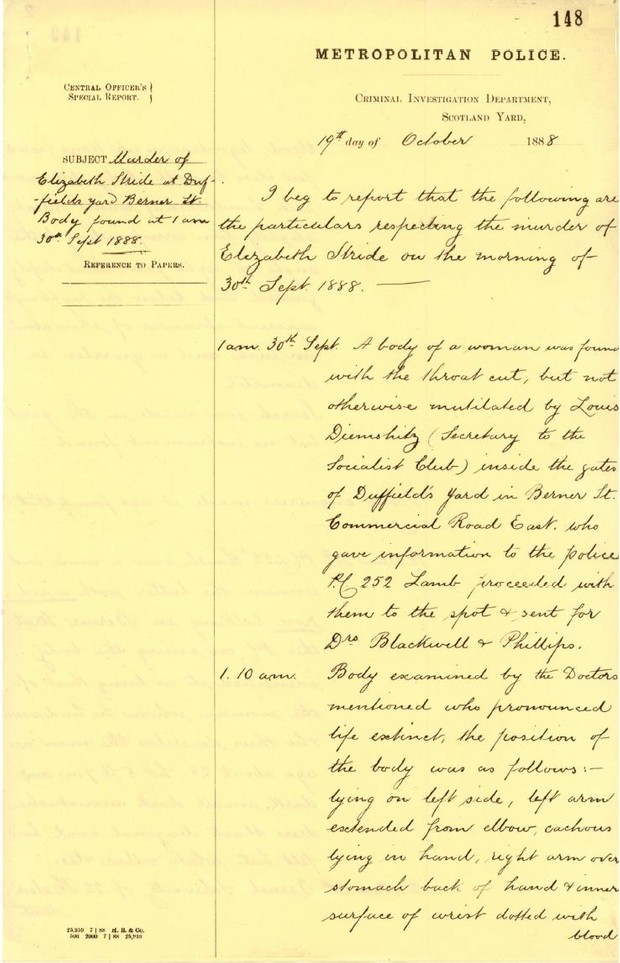 148
METROPOLITAN POLICE.
CENTRAL OFFICER'S
SPECIAL REPORT.
CRIMINAL INVESTIGATION DEPARTMENT,
SCOTLAND YARD,
19th day of October 1888
SUBJECT Murder of
Elizabeth Stride at Duf-
-fields yard Berner St.
Body found at 1 am
30th Sept 1888.
REFERENCE TO PAPERS.
I beg to report that the following are
the particulars respecting the murder of
Elizabeth Stride on the morning of
30th Sept 1888. —
1 am. 30th Sept. A body of a woman was found
with the throat cut, but not
otherwise mutilated by Louis
Diemshitz (Secretary to the
Socialist Club) inside the gates
of Duffield's Yard in Berner St.
Commercial Road East. who
gave information to the police
P.C. 252 Lamb proceeded with
them to the spot & sent for
Drs Blackwell & Phillips.
1. 10 am. Body examined by the Doctors
mentioned who pronounced
life extinct, the position of
the body was as follows:—
lying on left side, left arm
extended from elbow, cachous
lying in hand, right arm over
stomach back of hand & inner
surface of wrist dotted with
blood
25,910 7 | 88 H. B. & Co.
500 2000 7 | 88 25,910